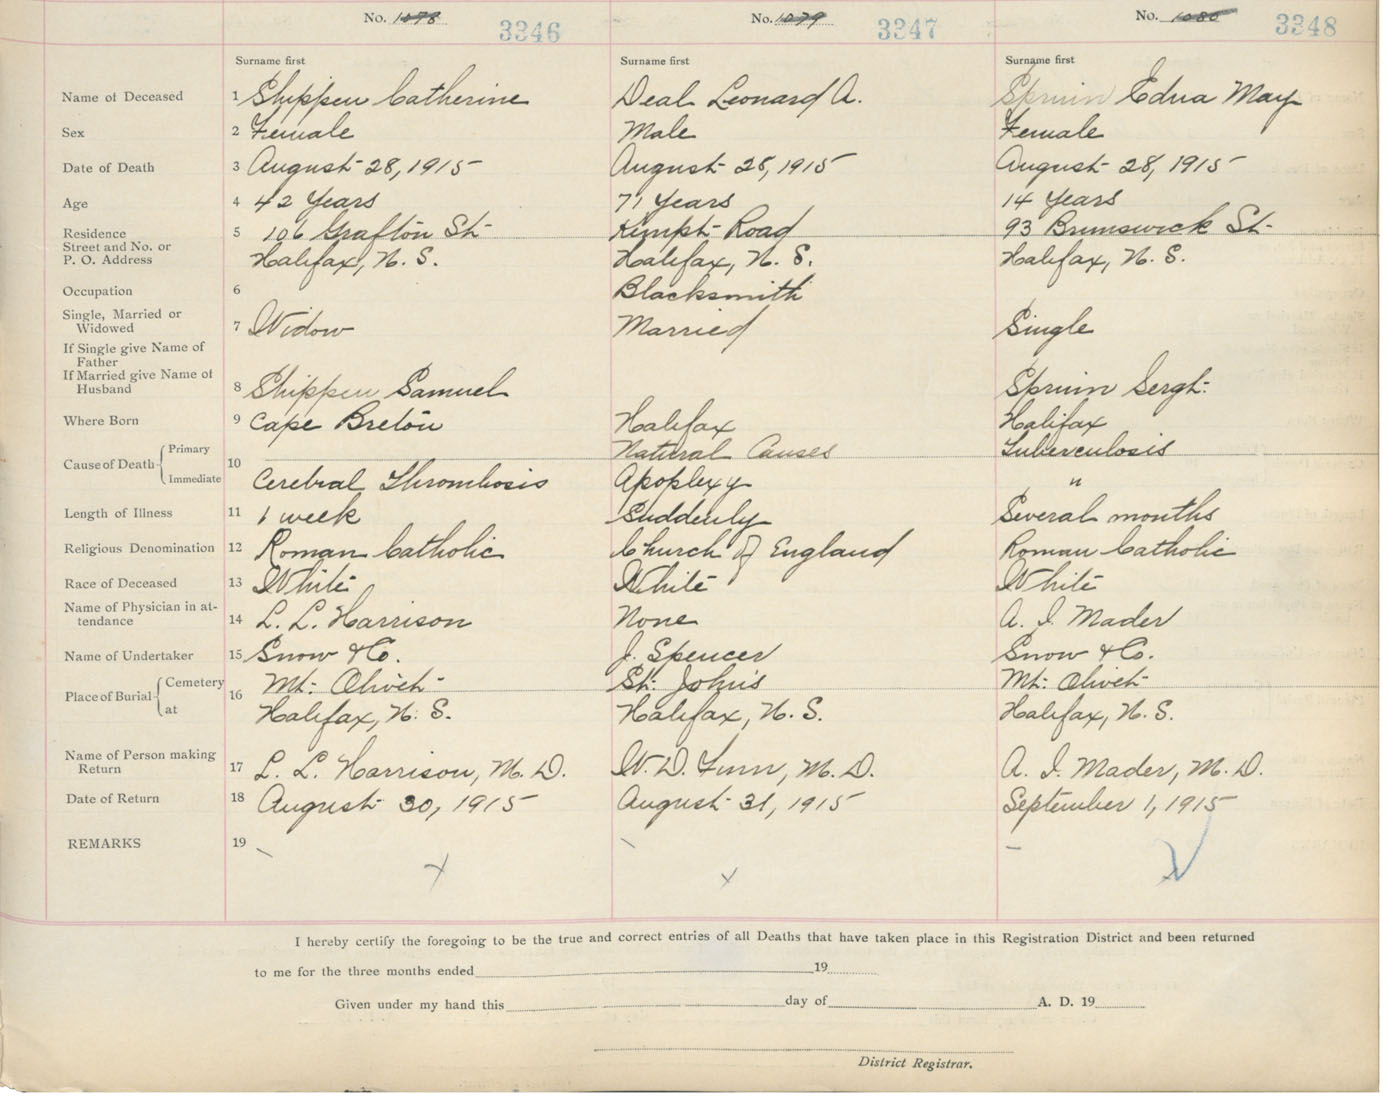 No. 1078 3346 No. 1079 3347 No. 1080 3348
Surname first Surname first Surname first
Name of Deceased 1 Shippen Catherine Deal Leonard A. Spruin Edna May
Sex 2 Female Male Female
Date of Death 3 August 28, 1915 August 28, 1915 August 28, 1915
Age 4 42 Years 71 Years 14 Years
Residence 5 106 Grafton St Kempt Road 93 Brunswick St
Street and No. or
P. O. Address Halifax, N. S. Halifax, N. S. Halifax, N. S.
Occupation 6 Blacksmith
Single, Married or
Widowed 7 Widow Married Single
If Single give Name of
Father
If Married give Name of
Husband 8 Shippen Samuel Spruin Sergt.
Where Born 9 Cape Breton Halifax Halifax
Cause of Death Primary 10 Natural Causes Tuberculosis
Immediate Cerebral Thrombosis Apoplexy "
Length of Illness 11 1 week Suddenly Several months
Religious Denomination 12 Roman Catholic Church of England Roman Catholic
Race of Deceased 13 White White White
Name of Physician in at-
tendance 14 L. L. Harrison None A. I. Mader
Name of Undertaker 15 Snow & Co. J. Spencer Snow & Co.
Place of Burial Cemetery 16 Mt. Olivet St. John's Mt. Olivet
at Halifax, N. S. Halifax, N. S. Halifax, N. S.
Name of Person making
Return 17 L. L. Harrison, M. D. W. D. Finn, M. D. A. I. Mader, M. D.
Date of Return 18 August 30, 1915 August 31, 1915 September 1, 1915
REMARKS 19
I hereby certify the foregoing to be the true and correct entries of all Deaths that have taken place in this Registration District and been returned
to me for the three months ended 19
Given under my hand this day of A. D. 19
District Registrar.